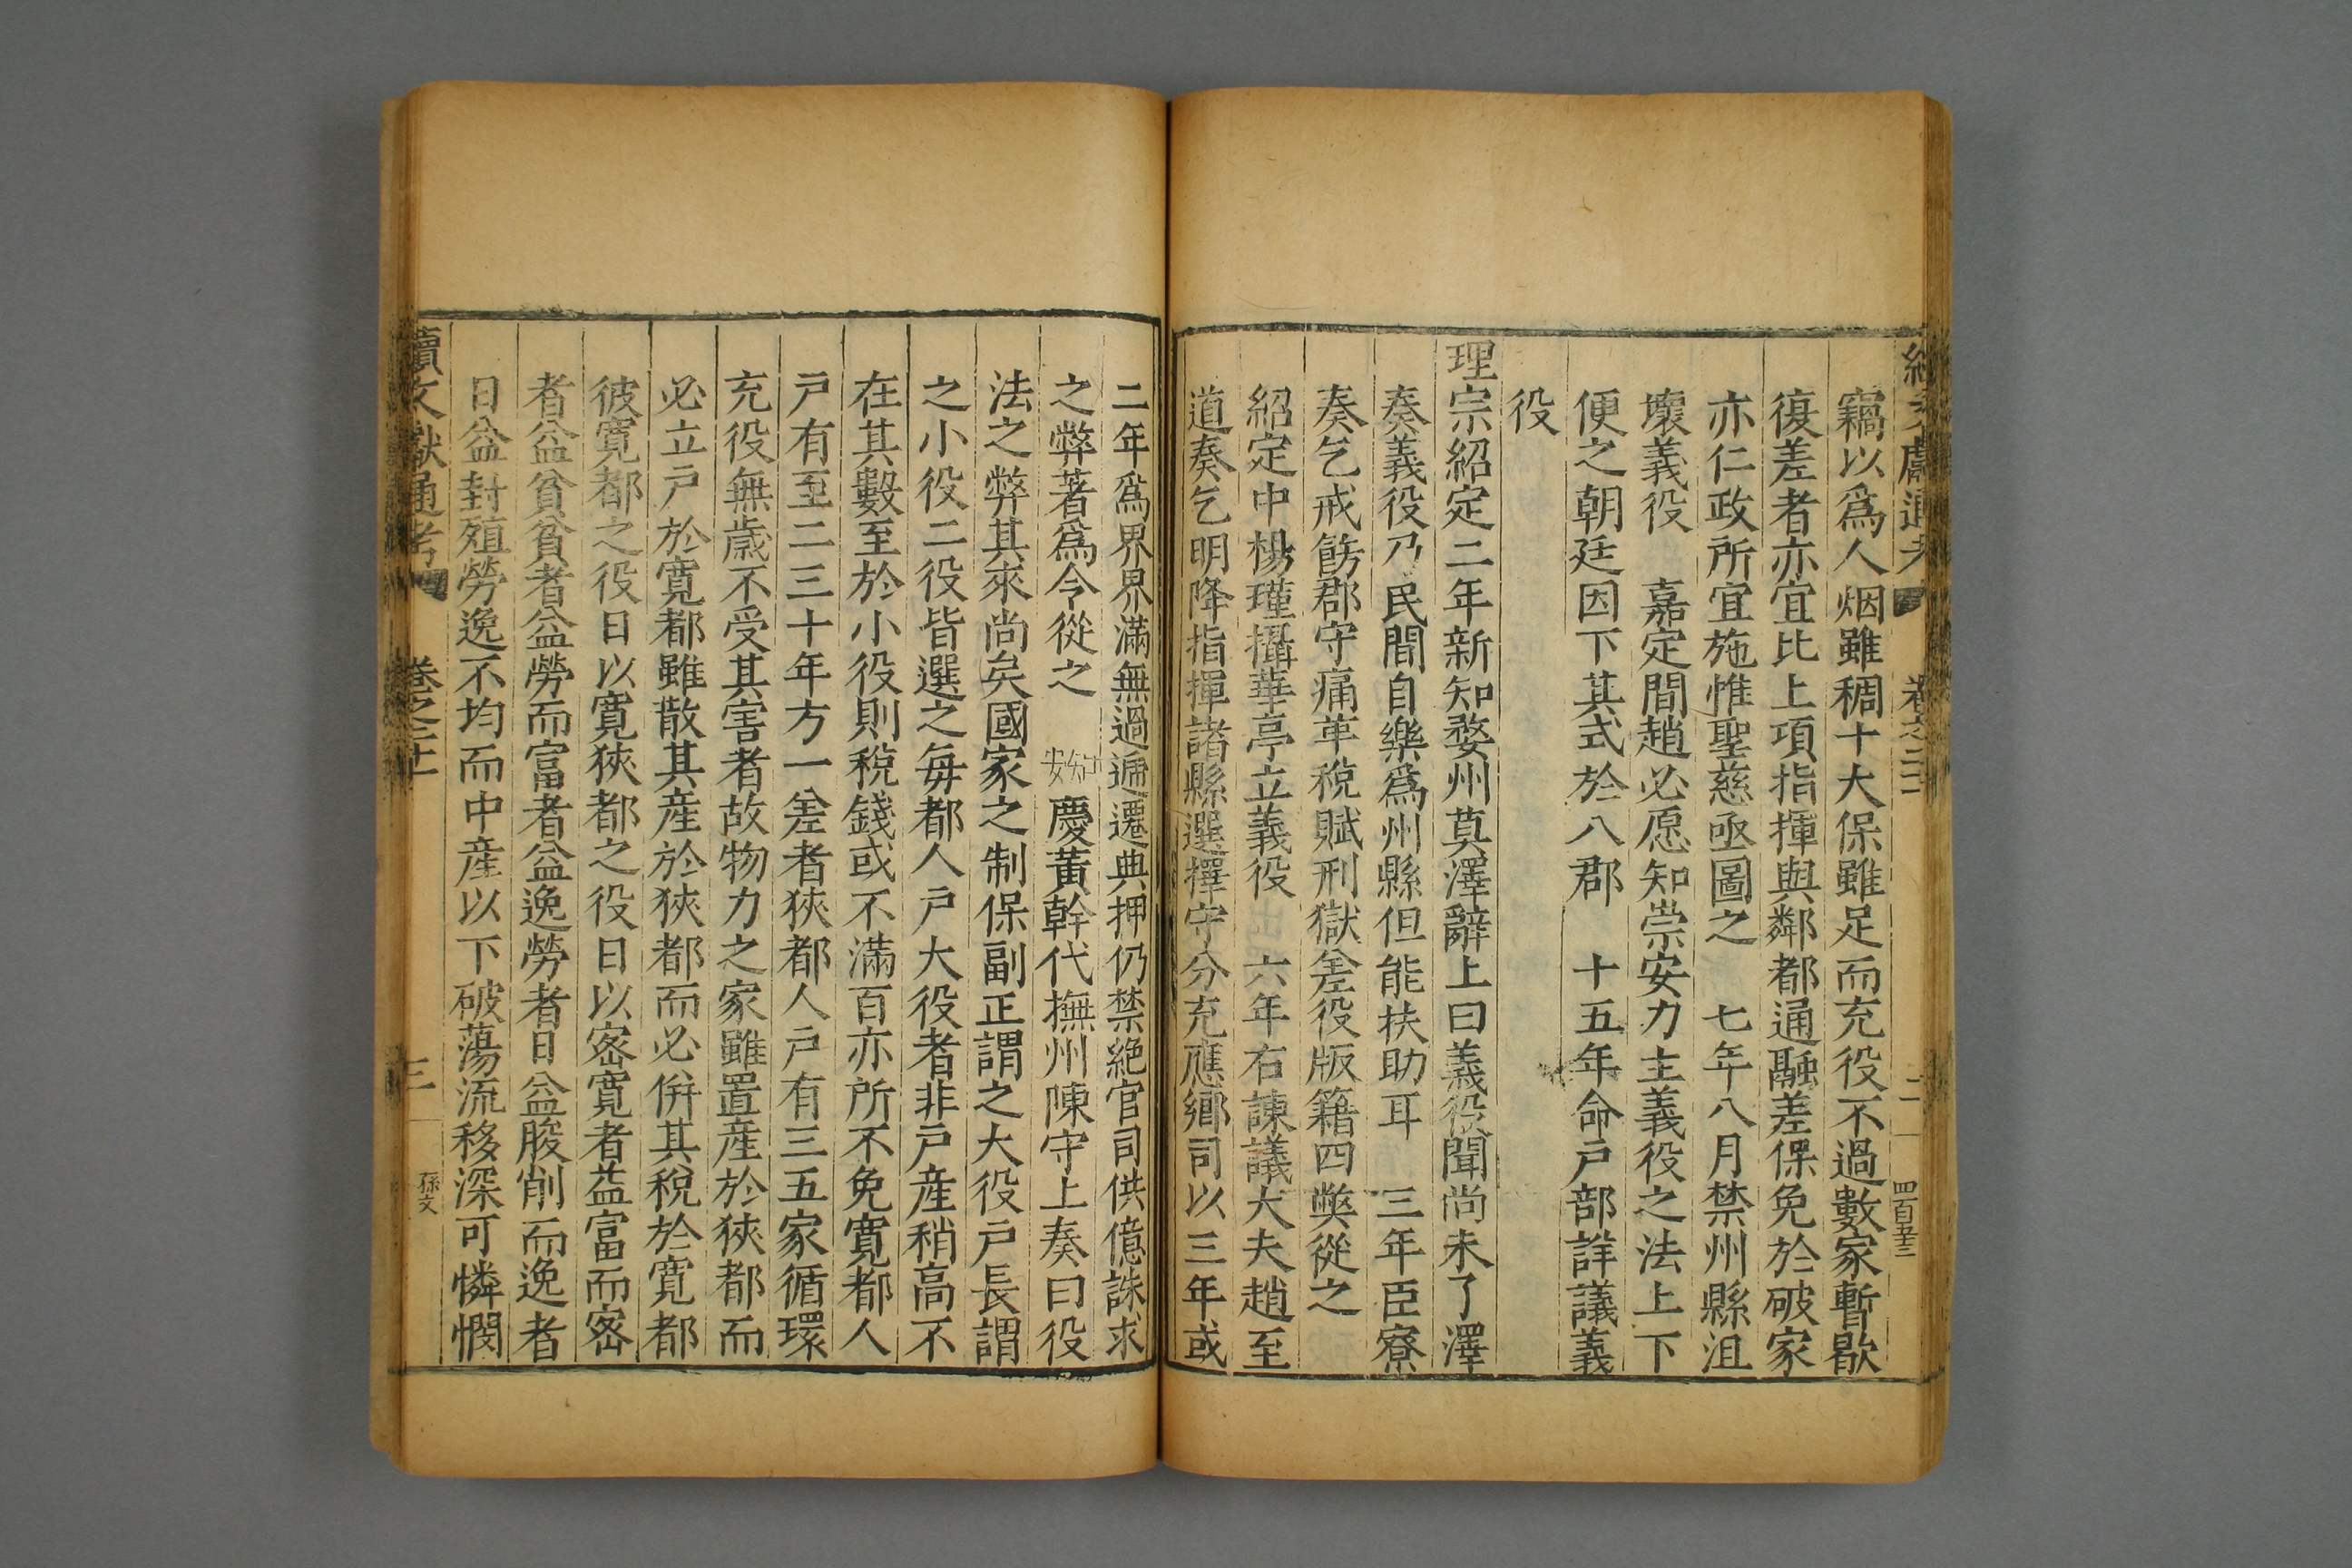 竊以爲人烟雖稠十大保雖足而充役不過數家暫歇
復差者亦宜比上項指揮與鄰都通融差保免於破家
亦仁政所宜施惟聖慈亟圖之　七年八月禁州縣沮
壞義役　嘉定間趙必愿知崇安力主義役之法上下
便之朝廷因下其式於八郡　十五年命戸部詳議義
役
理宗紹定二年新知婺州莫澤辭上曰義役聞尚未了澤
奏義役乃民間自樂爲州縣但能扶助耳　三年臣寮
奏乞戒飭郡守痛革稅賦刑獄差役版籍四獘從之
紹定中楊瑾攝華亭立義役　六年右諫議大夫趙至
道奏乞明降指揮諸縣選擇守分充應鄉司以三年或
二年爲界界滿無過遞遷典押仍禁絶官司供億誅求
之弊著爲令從之　慶黃幹代撫州陳守上奏曰役
法之弊其來尚矣國家之制保副正謂之大役戸長謂
之小役二役皆選之毎都人戸大役者非戸産稍高不
在其數至於小役則稅錢或不滿百亦所不免寬都人
戸有至二三十年方一差者狹都人戸有三五家循環
充役無歲不受其害者故物力之家雖置産於狹都而
必立戸於寬都雖散其産於狹都而必併其稅於寬都
彼寬都之役日以寬狹都之役日以宻寬者益富而宻
者益貧貧者益勞而富者益逸勞者日益朘削而逸者
日益封殖勞逸不均而中産以下破蕩流移深可憐憫
續文獻通考　卷之二十　三　孫文